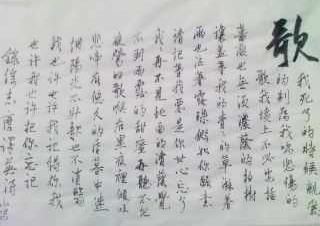 歌
我死了的時候親愛
的别為我唱悲傷的
歌我墳上不必安插
薔薇也無須濃蔭的柏樹
讓蓋着我的青青的草淋着
雨也沾着露珠假如你願意
請記着我要是你甘心忘了
我再不見地面的清蔭覺
不到雨露的甜蜜再聽不見
夜鶯的歌喉在黑夜裡傾吐
悲啼在悠久的昏暮中迷
惘陽光不升起也不消翳
我也許也許我記得你我
也許我也許把你忘記
錄徐志摩譯英詩